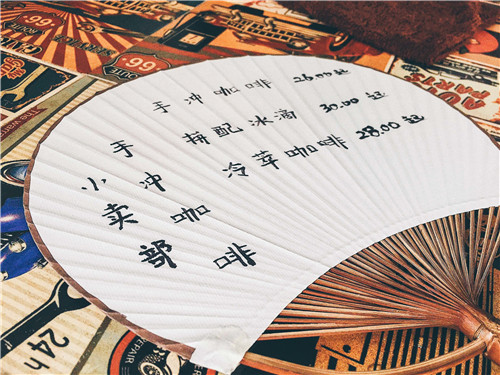 手冲咖啡
小卖部
手冲咖啡 25.00起
拼配冰滴 30.00起
冷萃咖啡 28.00起
ROUTE
66
66
AUTO
PARTS
24h